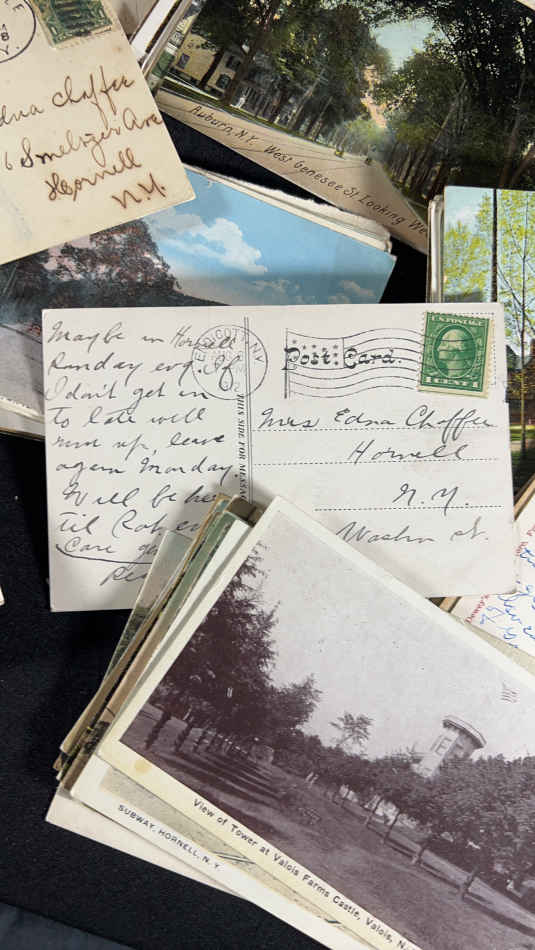 Edna Chaffer
6 Smeltzer Ave
Hornell
N.Y.
Auburn, N.Y. West Genesee St Looking We
Maybe in Hornell
Sunday evg. If
I don't get in
to late will
run up, leave
again Monday.
Will be he
til Sat. e
Care
ENDICOTT, N.Y.
Post Card.
THIS SIDE FOR MESSAG
U.S. POSTAGE
1 CENT 1
Mrs Edna Chaffer
Hornell
N.Y.
Washn St.
View of Tower at Valois Farms Castle, Valois, N
SUBWAY, HORNELL, N.Y.